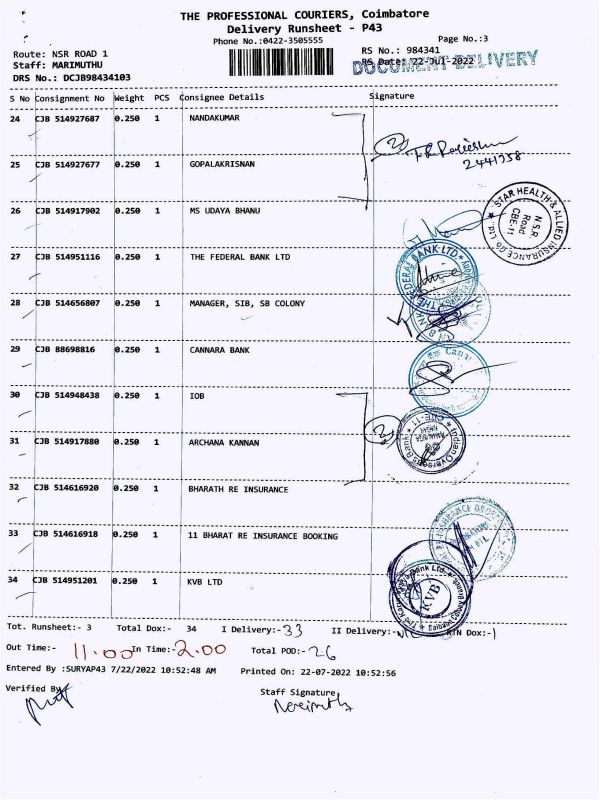 THE PROFESSIONAL COURIERS, Coimbatore
Delivery Runsheet - P43
Phone No.:0422-3505555 Page No.:3
Route: NSR ROAD 1 RS No.: 984341
Staff: MARIMUTHU RS Date: 22-Jul-2022
DOCUMENT DELIVERY
DRS No.: DCJB98434103
S No Consignment No Weight PCS Consignee Details Signature
24 CJB 514927687 0.250 1 NANDAKUMAR
2441758
25 CJB 514927677 0.250 1 GOPALAKRISNAN
26 CJB 514917902 0.250 1 MS UDAYA BHANU
STAR HEALTH & ALLIED INSURANCE CO. LTD.
N.S.R. Road CBE-11
27 CJB 514951116 0.250 1 THE FEDERAL BANK LTD
THE FEDERAL BANK LTD
28 CJB 514656807 0.250 1 MANAGER, SIB, SB COLONY
29 CJB 88698816 0.250 1 CANNARA BANK
30 CJB 514948438 0.250 1 IOB
Indian Overseas Bank
31 CJB 514917880 0.250 1 ARCHANA KANNAN
32 CJB 514616920 0.250 1 BHARATH RE INSURANCE
33 CJB 514616918 0.250 1 11 BHARAT RE INSURANCE BOOKING
34 CJB 514951201 0.250 1 KVB LTD
KVB
Tot. Runsheet:- 3 Total Dox:- 34 I Delivery:- 33 II Delivery:- RTN Dox:-1
Out Time:- 11.00 In Time:- 2.00 Total POD:- 26
Entered By :SURYAP43 7/22/2022 10:52:48 AM Printed On: 22-07-2022 10:52:56
Verified By
Staff Signature